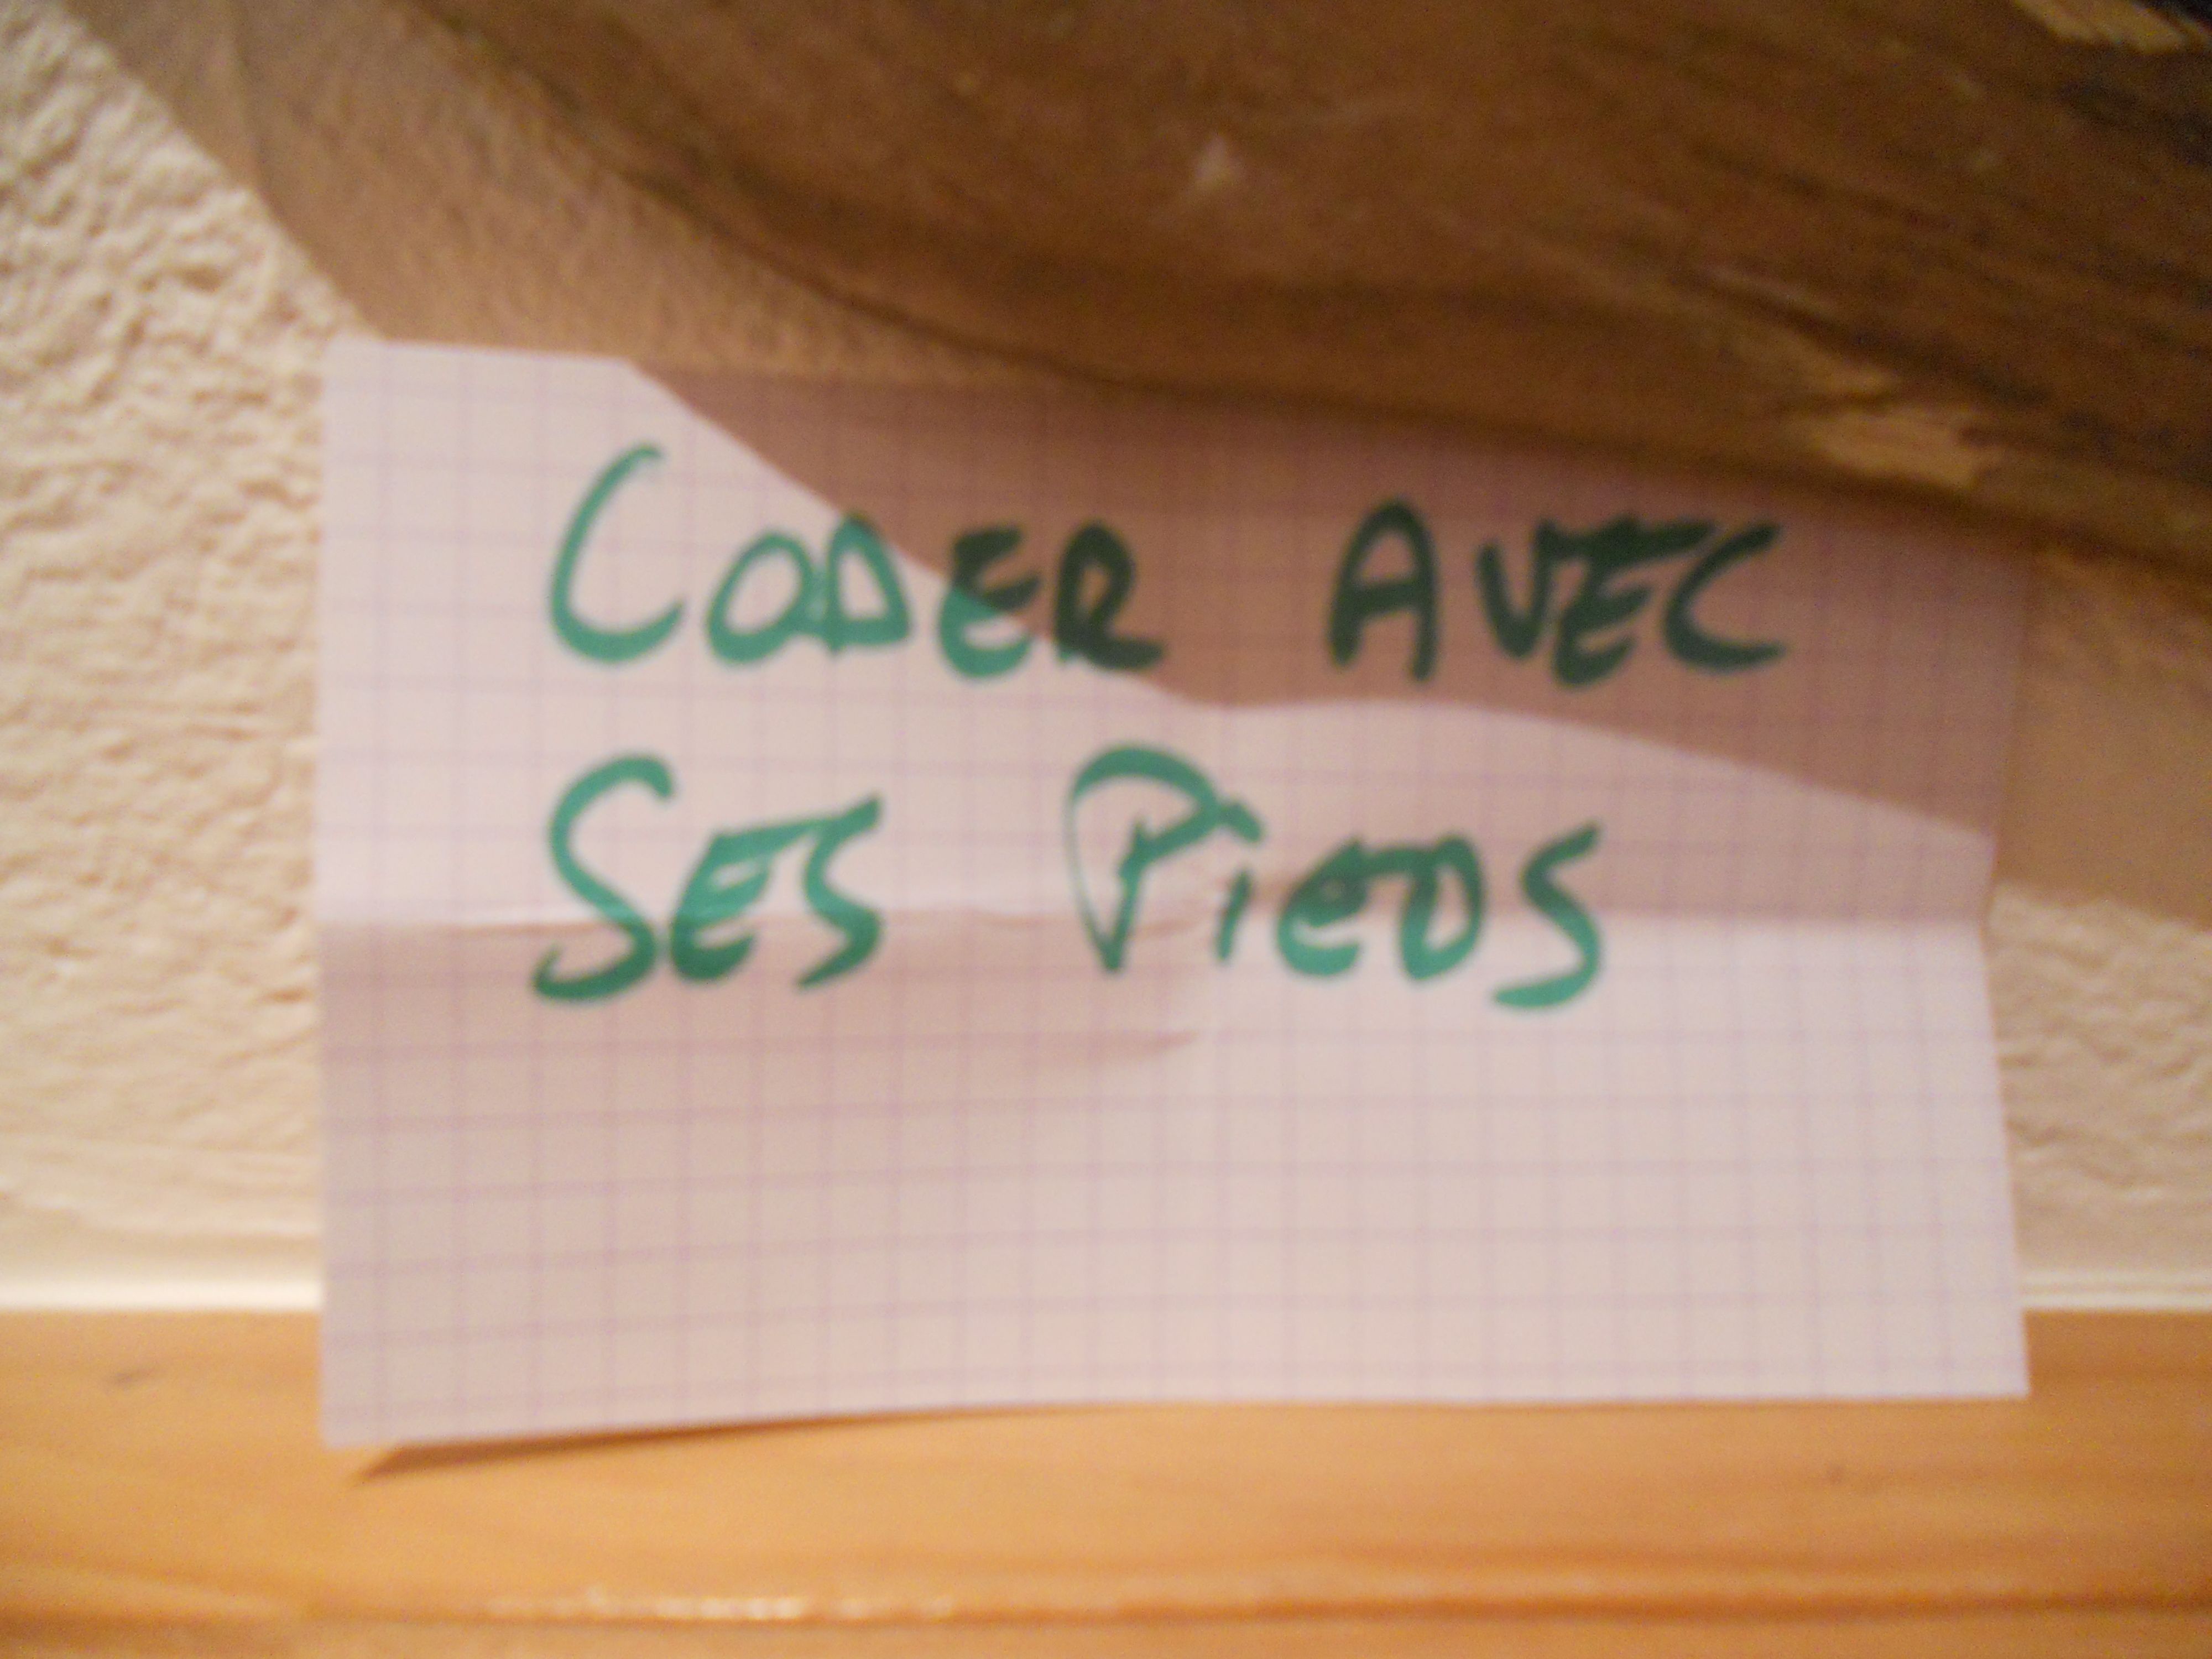 CODER AVEC
SES PiEDS